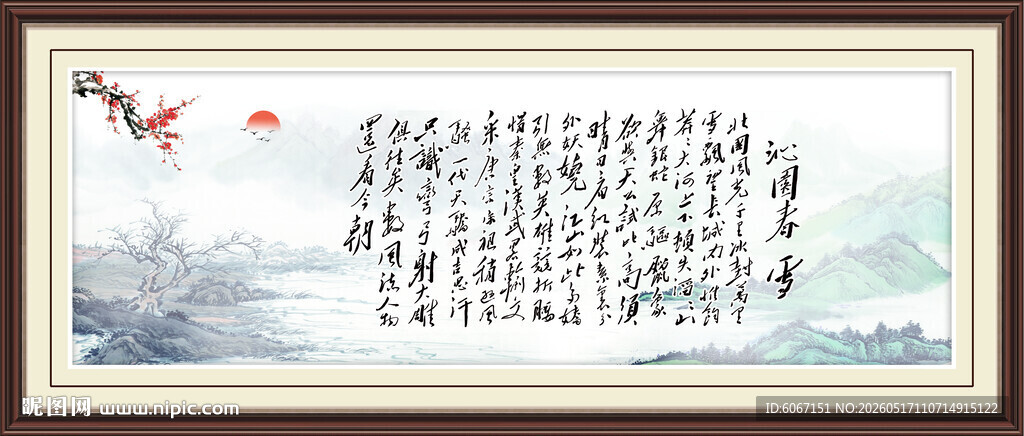 沁園春 雪
北國風光千里冰封萬里
雪飄望長城内外惟餘
莽〻大河上下頓失滔〻山
舞銀蛇原驅臘象
欲與天公試比高須
晴日看紅裝素裹分
外妖嬈江山如此多嬌
引無數英雄競折腰
惜秦皇漢武略輸文
采唐宗宋祖稍遜風
騷一代天驕成吉思汗
只識彎弓射大雕
俱往矣數風流人物
還看今朝
昵图网 www.nipic.com
ID:6067151 NO:20260517110714915122